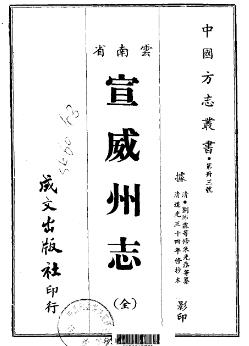 中國方志叢書·第卅三號
據清·劉沛霖等修朱光鼎等纂
清道光二十四年修抄本
影印
雲南省
宣威州志
(全)
成文出版社印行